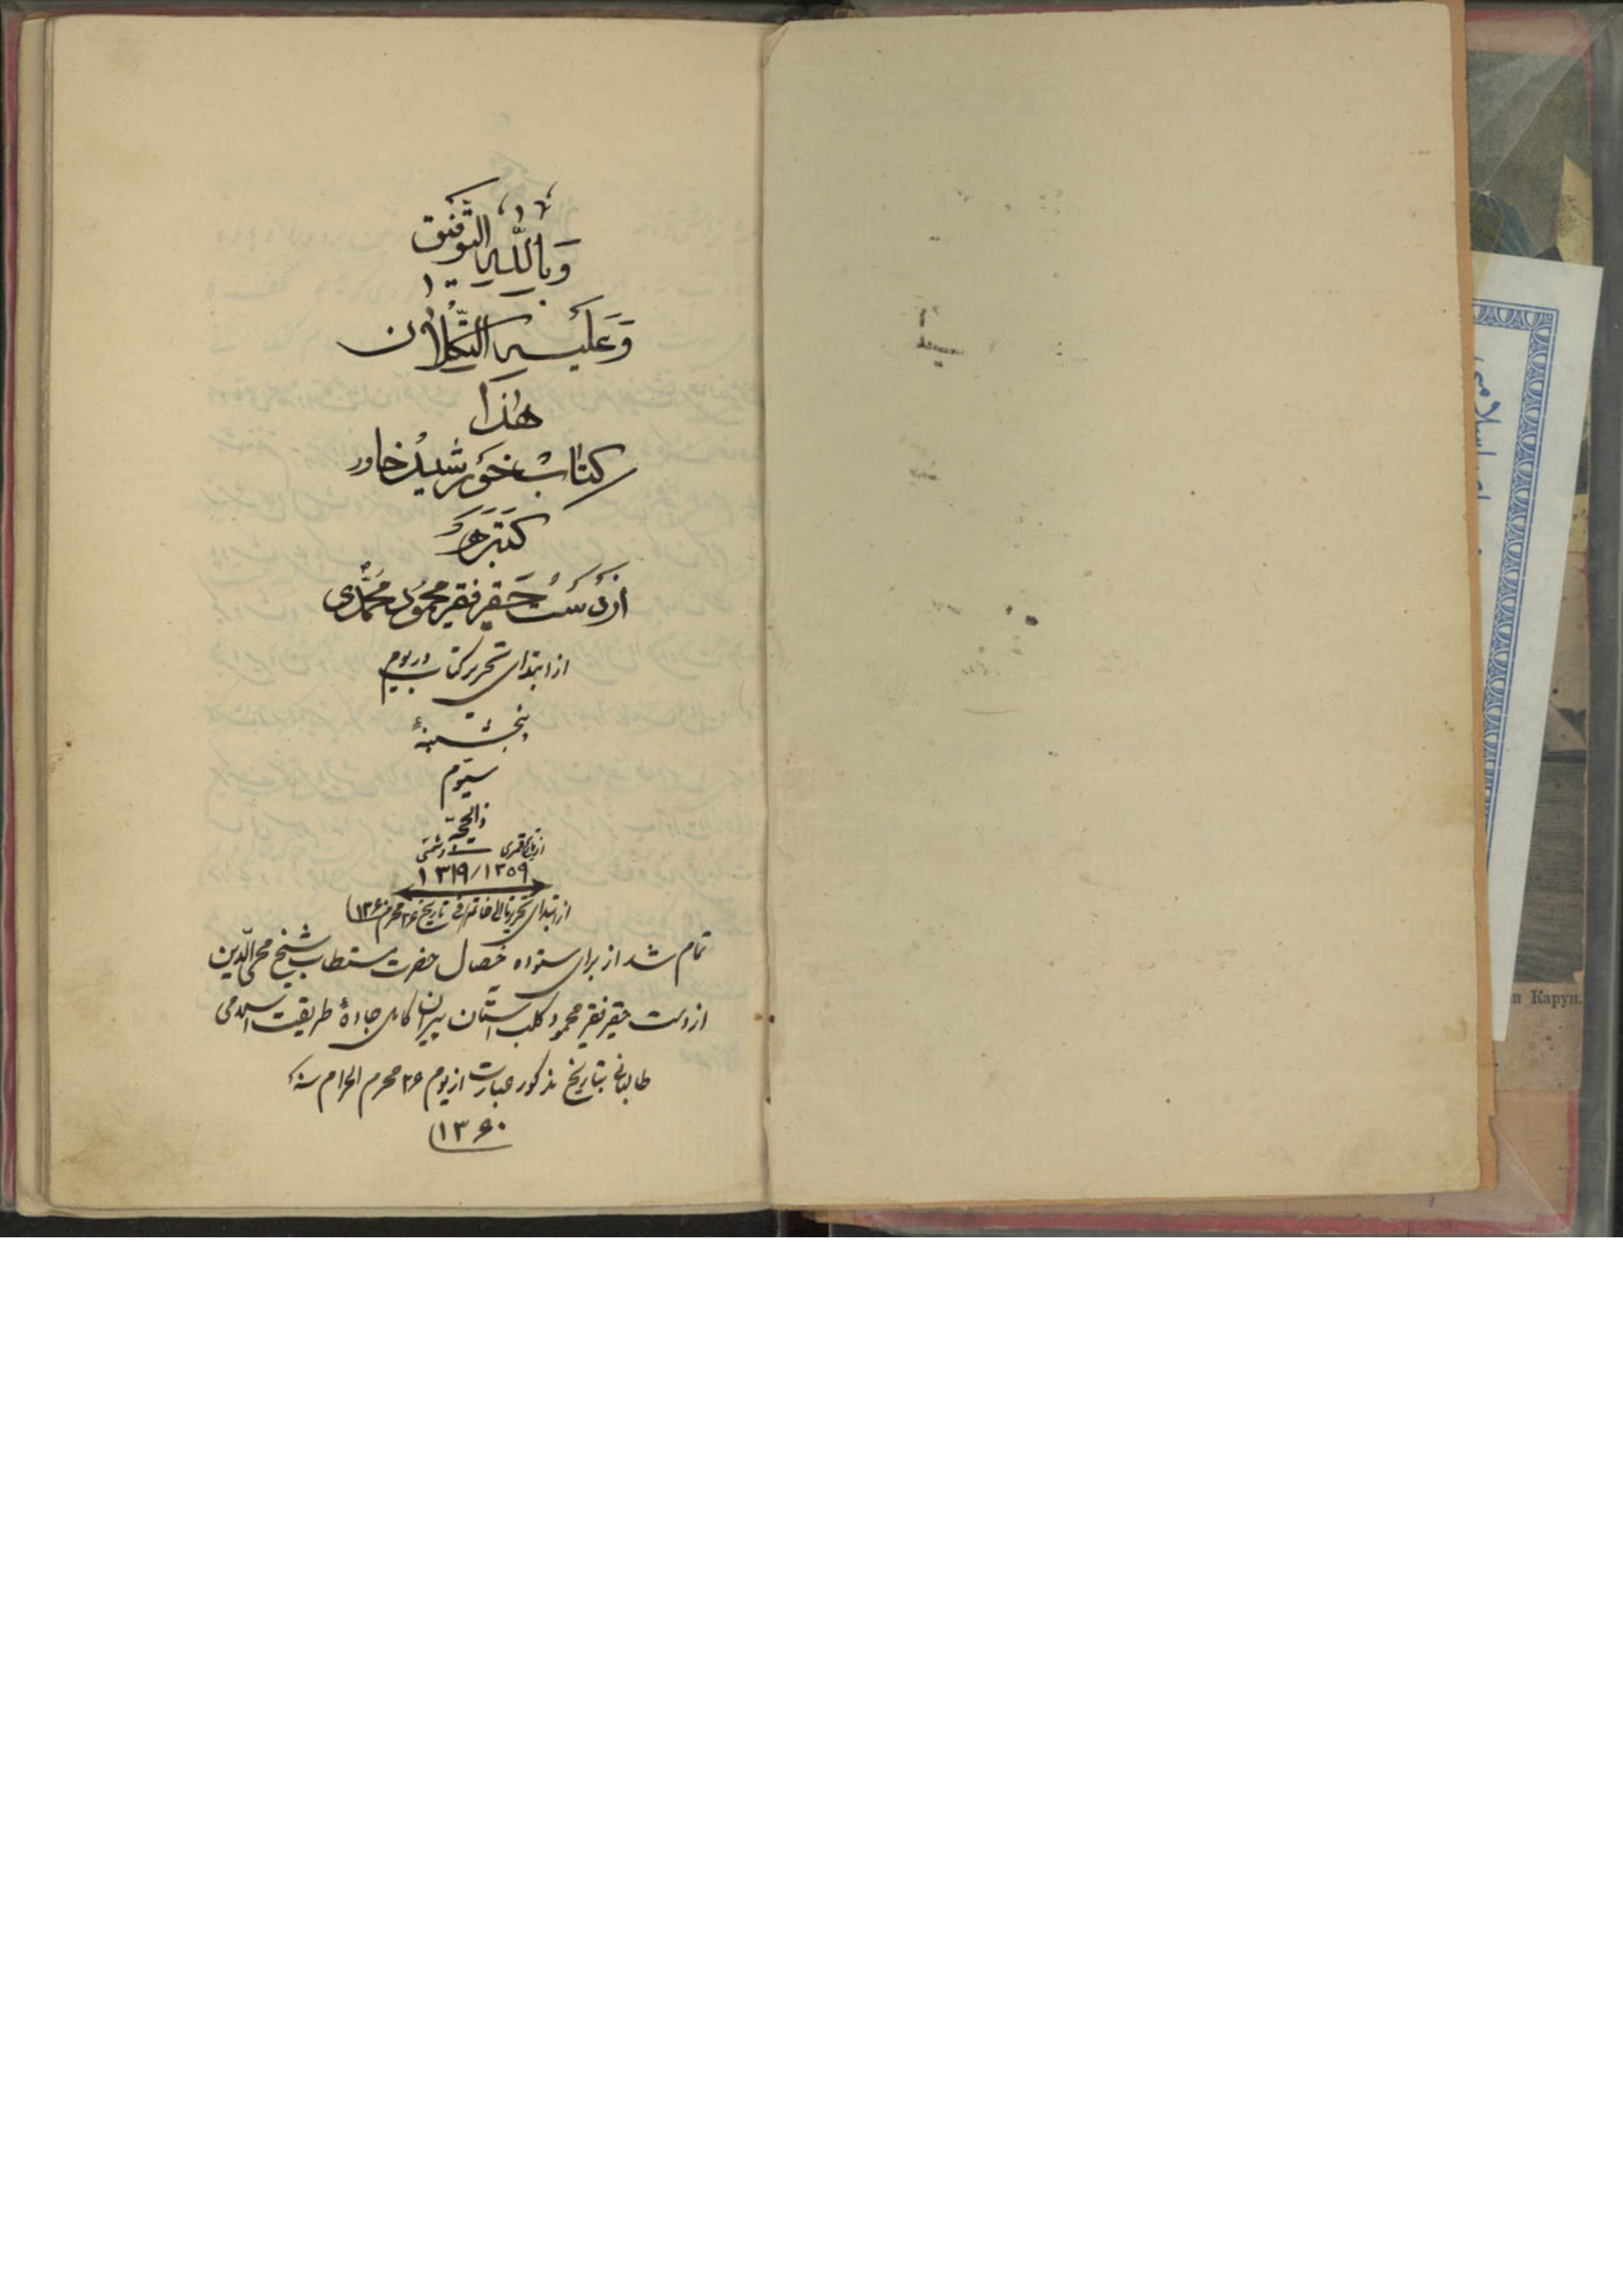 وَبِاللّٰهِ التَّوْفِیق
وَعَلَیْهِ التُّکْلَان
هٰذَا
کتاب خورشید خاور
کَتَبَ
از دست حقیر فقیر محمود محمّدی
از ابتدای تحریر کتاب در یوم
پنجشنبهٔ
سیّوم
ذالحجّه
قمری شمسی
۱۳۱۹/۱۳۵۹
از ابتدای تحریر تا الی خاتم تاریخ ۲۶ محرم ۱۳۶۰
تمام شد از برای ستوده خصال حضرت مستطاب شیخ محی الدّین
از دست حقیر فقیر محمود کلب آستان پیران کامل جادهٔ طریقت اسلامی
طالبانی بتاریخ مذکور عبارت از یوم ۲۶ محرم الحرام سنهٔ
۱۳۶۰
اسلامی
Карун.